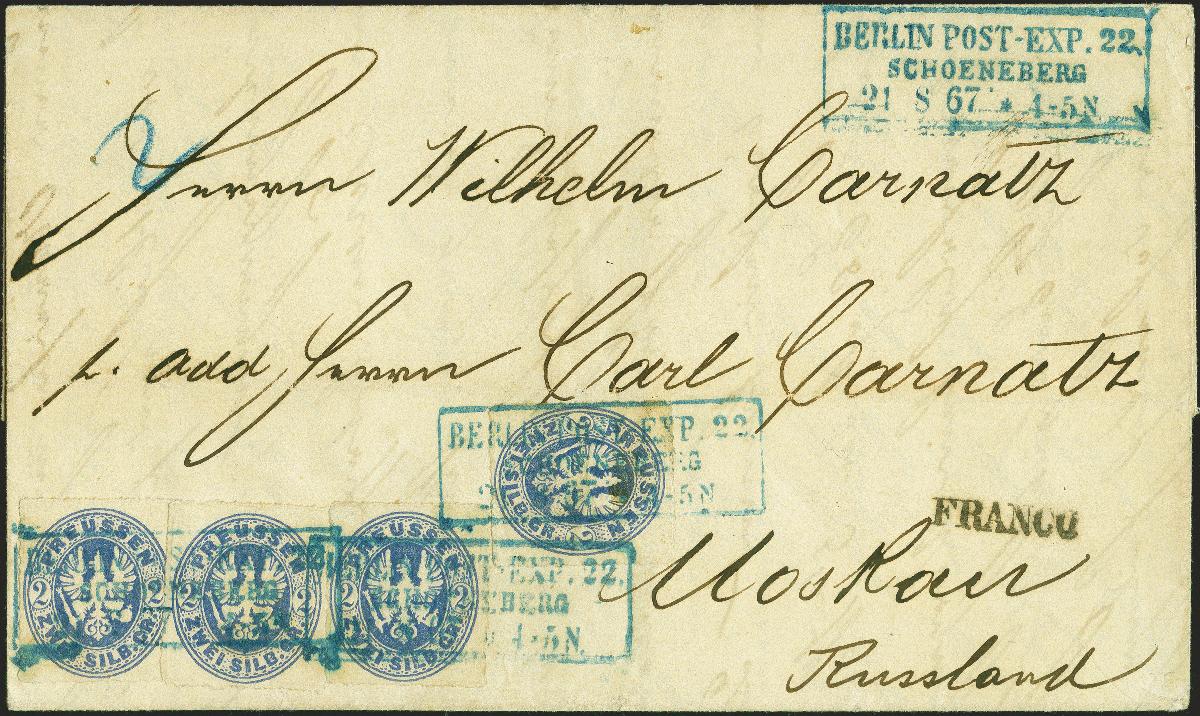 BERLIN POST-EXP. 22.
SCHOENEBERG
21 8 67 * 4-5N
2
Herrn Wilhelm Carnatz
p. add Herrn Carl Carnatz
BERLIN EXP. 22.
ERG
-5N
PREUSSEN
2 2
FRANCO
Moskau
Russland
PREUSSEN
2 2
ZWEI SILB. GR.
PREUSSEN
2 2
ZWEI SILB. GR.
PREUSSEN
2 2
ZWEI SILB. GR.
T-EXP. 22.
EBERG
4-5N.